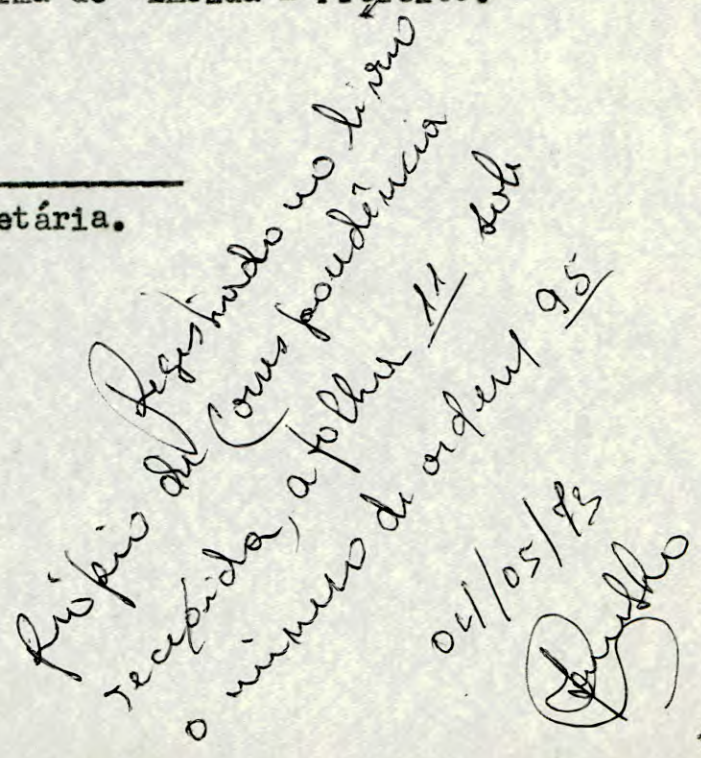 etária.
Registrado no livro
próprio de Correspondência
recebida, a folhas 11 sob
o número de ordem 95
04/05/73